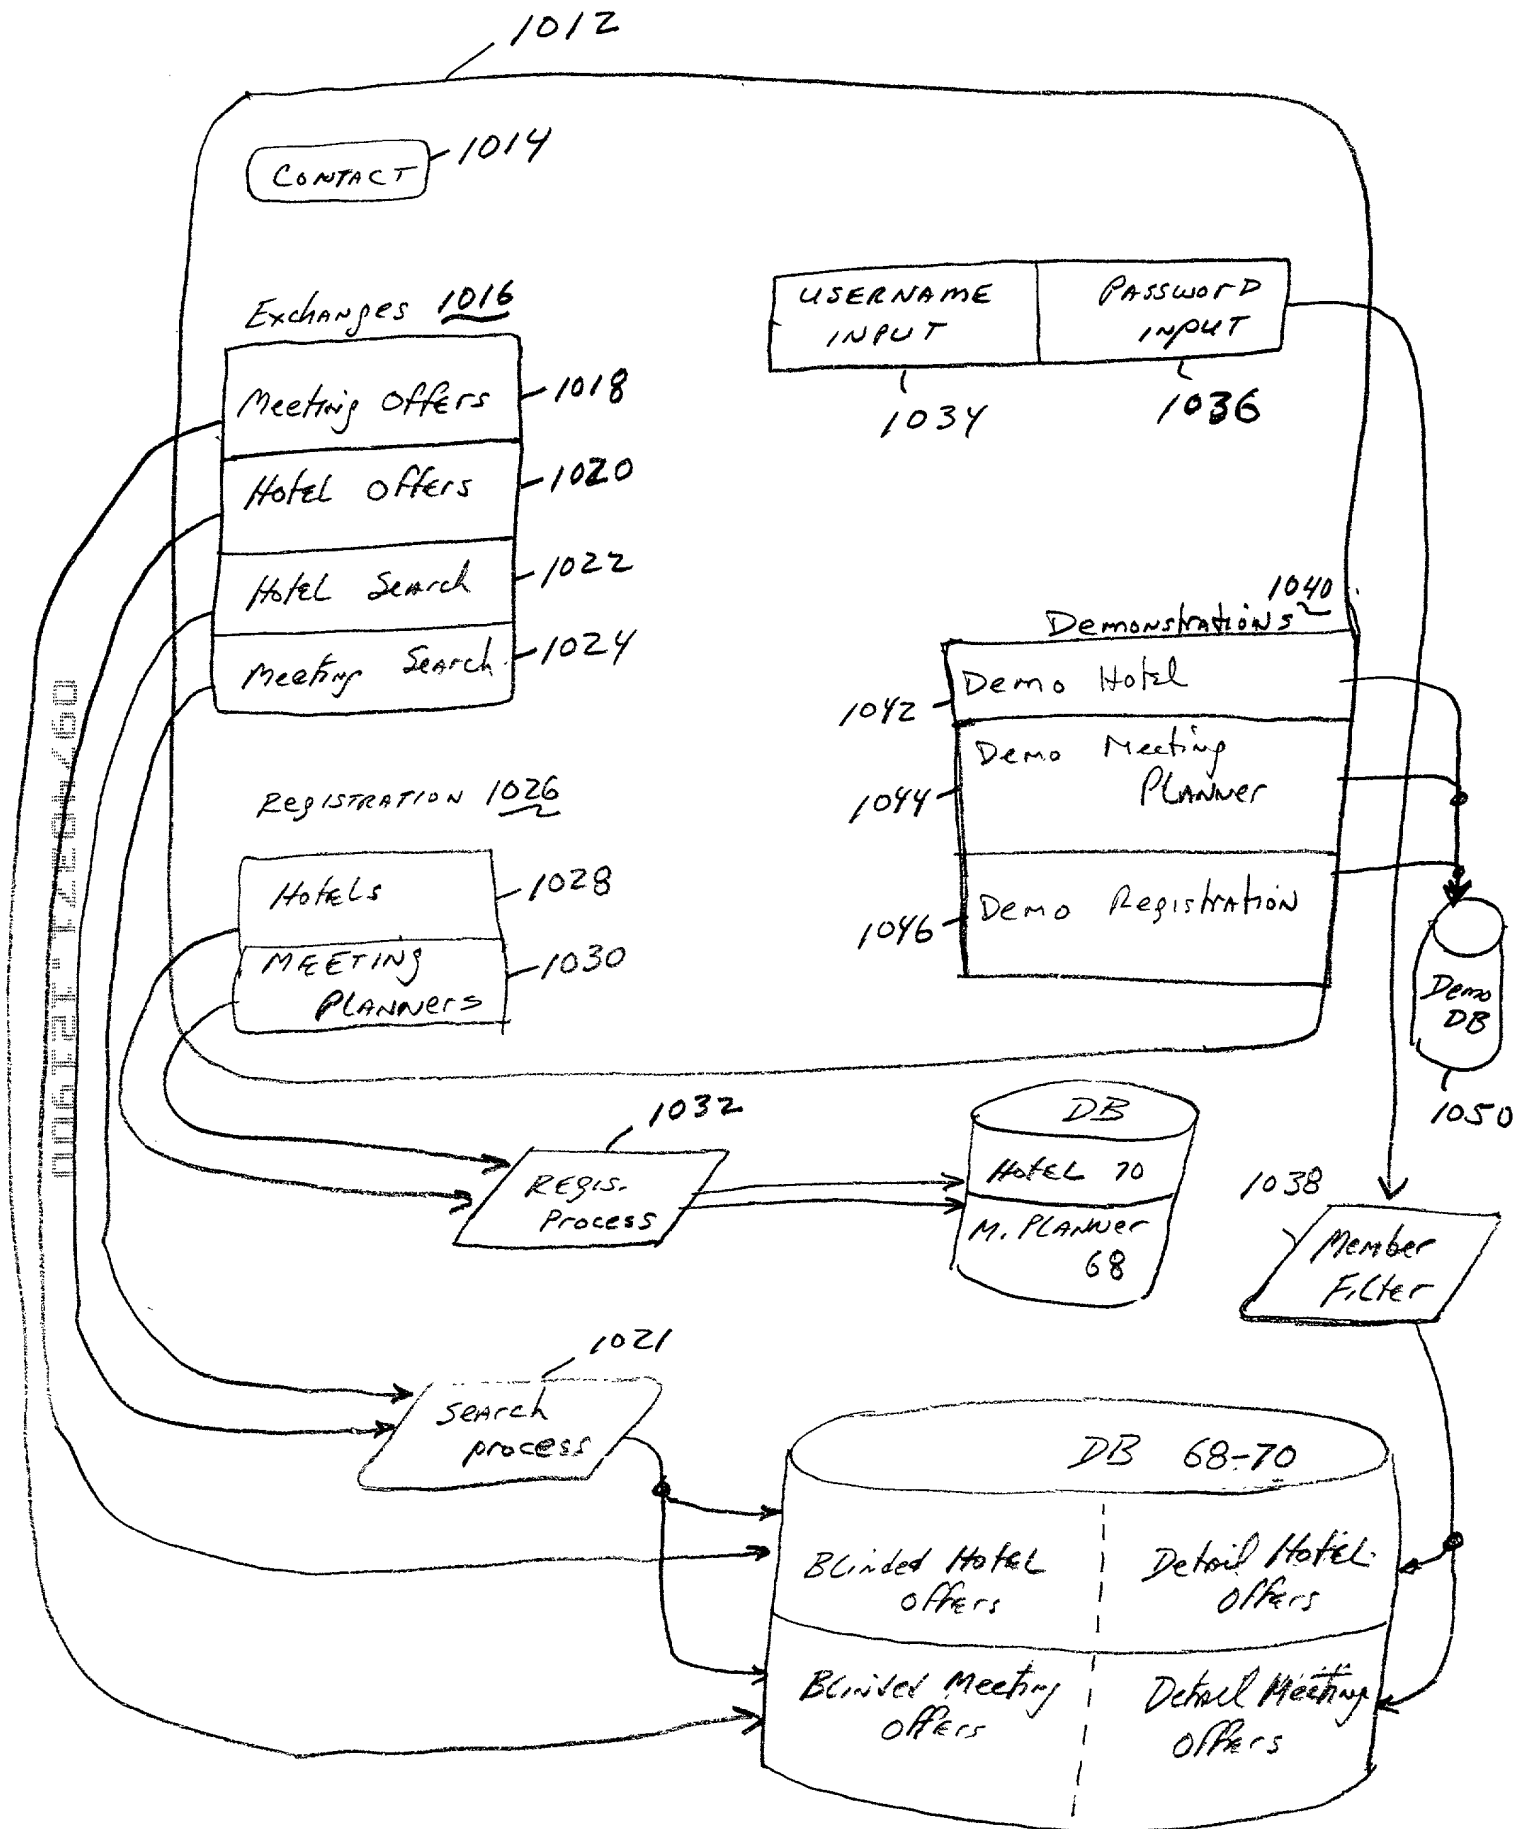 1012
CONTACT
1014
Exchanges 1016
Meeting Offers
1018
Hotel Offers
1020
Hotel Search
1022
Meeting Search
1024
USERNAME
INPUT
PASSWORD
INPUT
1034
1036
1040
Demonstrations
Demo Hotel
1042
Demo Meeting
Planner
1044
Demo Registration
1046
Registration 1026
Hotels
1028
MEETING
PLANNERS
1030
Demo
DB
1050
1032
REGIS.
Process
DB
Hotel 70
M. PLANNER
68
1038
Member
Filter
1021
Search
process
DB 68-70
Blinded Hotel
offers
Detail Hotel
offers
Blinded Meeting
offers
Detail Meeting
offers